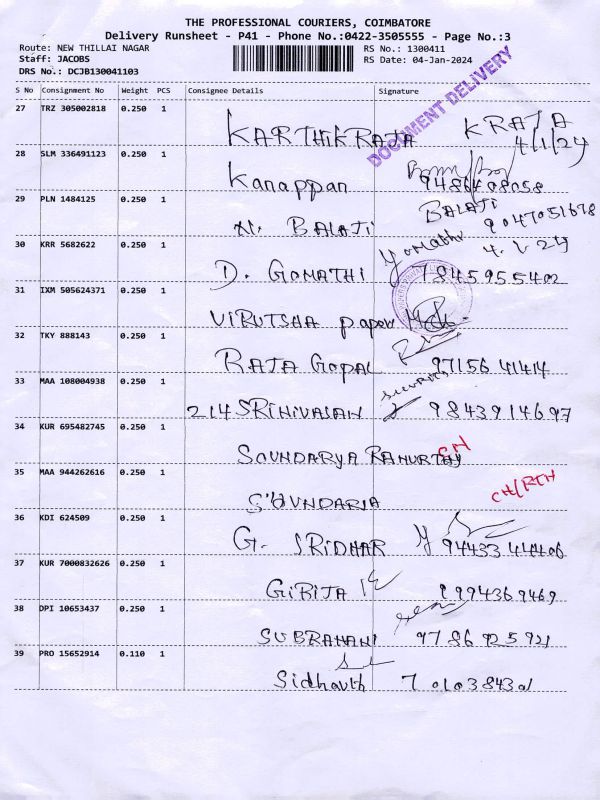 THE PROFESSIONAL COURIERS, COIMBATORE
Delivery Runsheet - P41 - Phone No.:0422-3505555 - Page No.:3
Route: NEW THILLAI NAGAR RS No.: 1300411
Staff: JACOBS RS Date: 04-Jan-2024
DRS No.: DCJB130041103
DOCUMENT DELIVERY
S No Consignment No Weight PCS Consignee Details Signature
27 TRZ 305002818 0.250 1
KARTHIKRAJA KRAJA
4/1/24
28 SLM 336491123 0.250 1
Kanappan 9486408058
29 PLN 1484125 0.250 1
BALAJI
N. BALAJI 9047051678
30 KRR 5682622 0.250 1
4.1.24
D. GOMATHI 7845955402
31 IXM 505624371 0.250 1
VIRUTSHA paper
32 TKY 888143 0.250 1
RAJA GOPAL 97156 41414
33 MAA 108004938 0.250 1
214 SRINIVASAN 9843914697
34 KUR 695482745 0.250 1
SOUNDARYA RAMURTHY
35 MAA 944262616 0.250 1
CH/RTH
36 KDI 624509 0.250 1
G. SRIDHAR 94433 44406
37 KUR 7000832626 0.250 1
GIRIJA 9994369469
38 DPI 10653437 0.250 1
SUBRAMANI 9786925921
39 PRO 15652914 0.110 1
Sidhauth